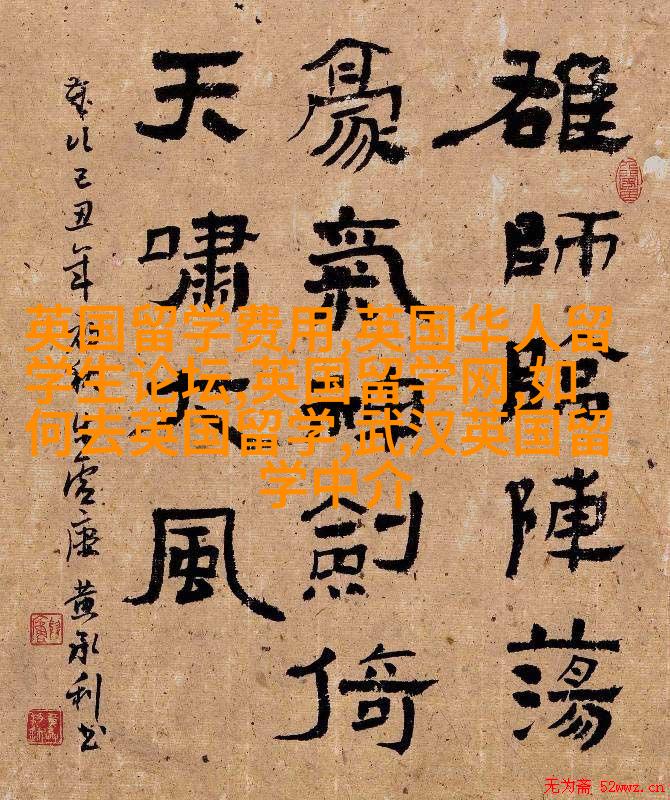 雄師臨陣蕩
豪氣劍倚
天嘯大風
己丑年
黄利书
英国留学费用,英国华人留
学生论坛,英国留学网,如
何去英国留学,武汉英国留
学中介
无为斋 52wwz.cn